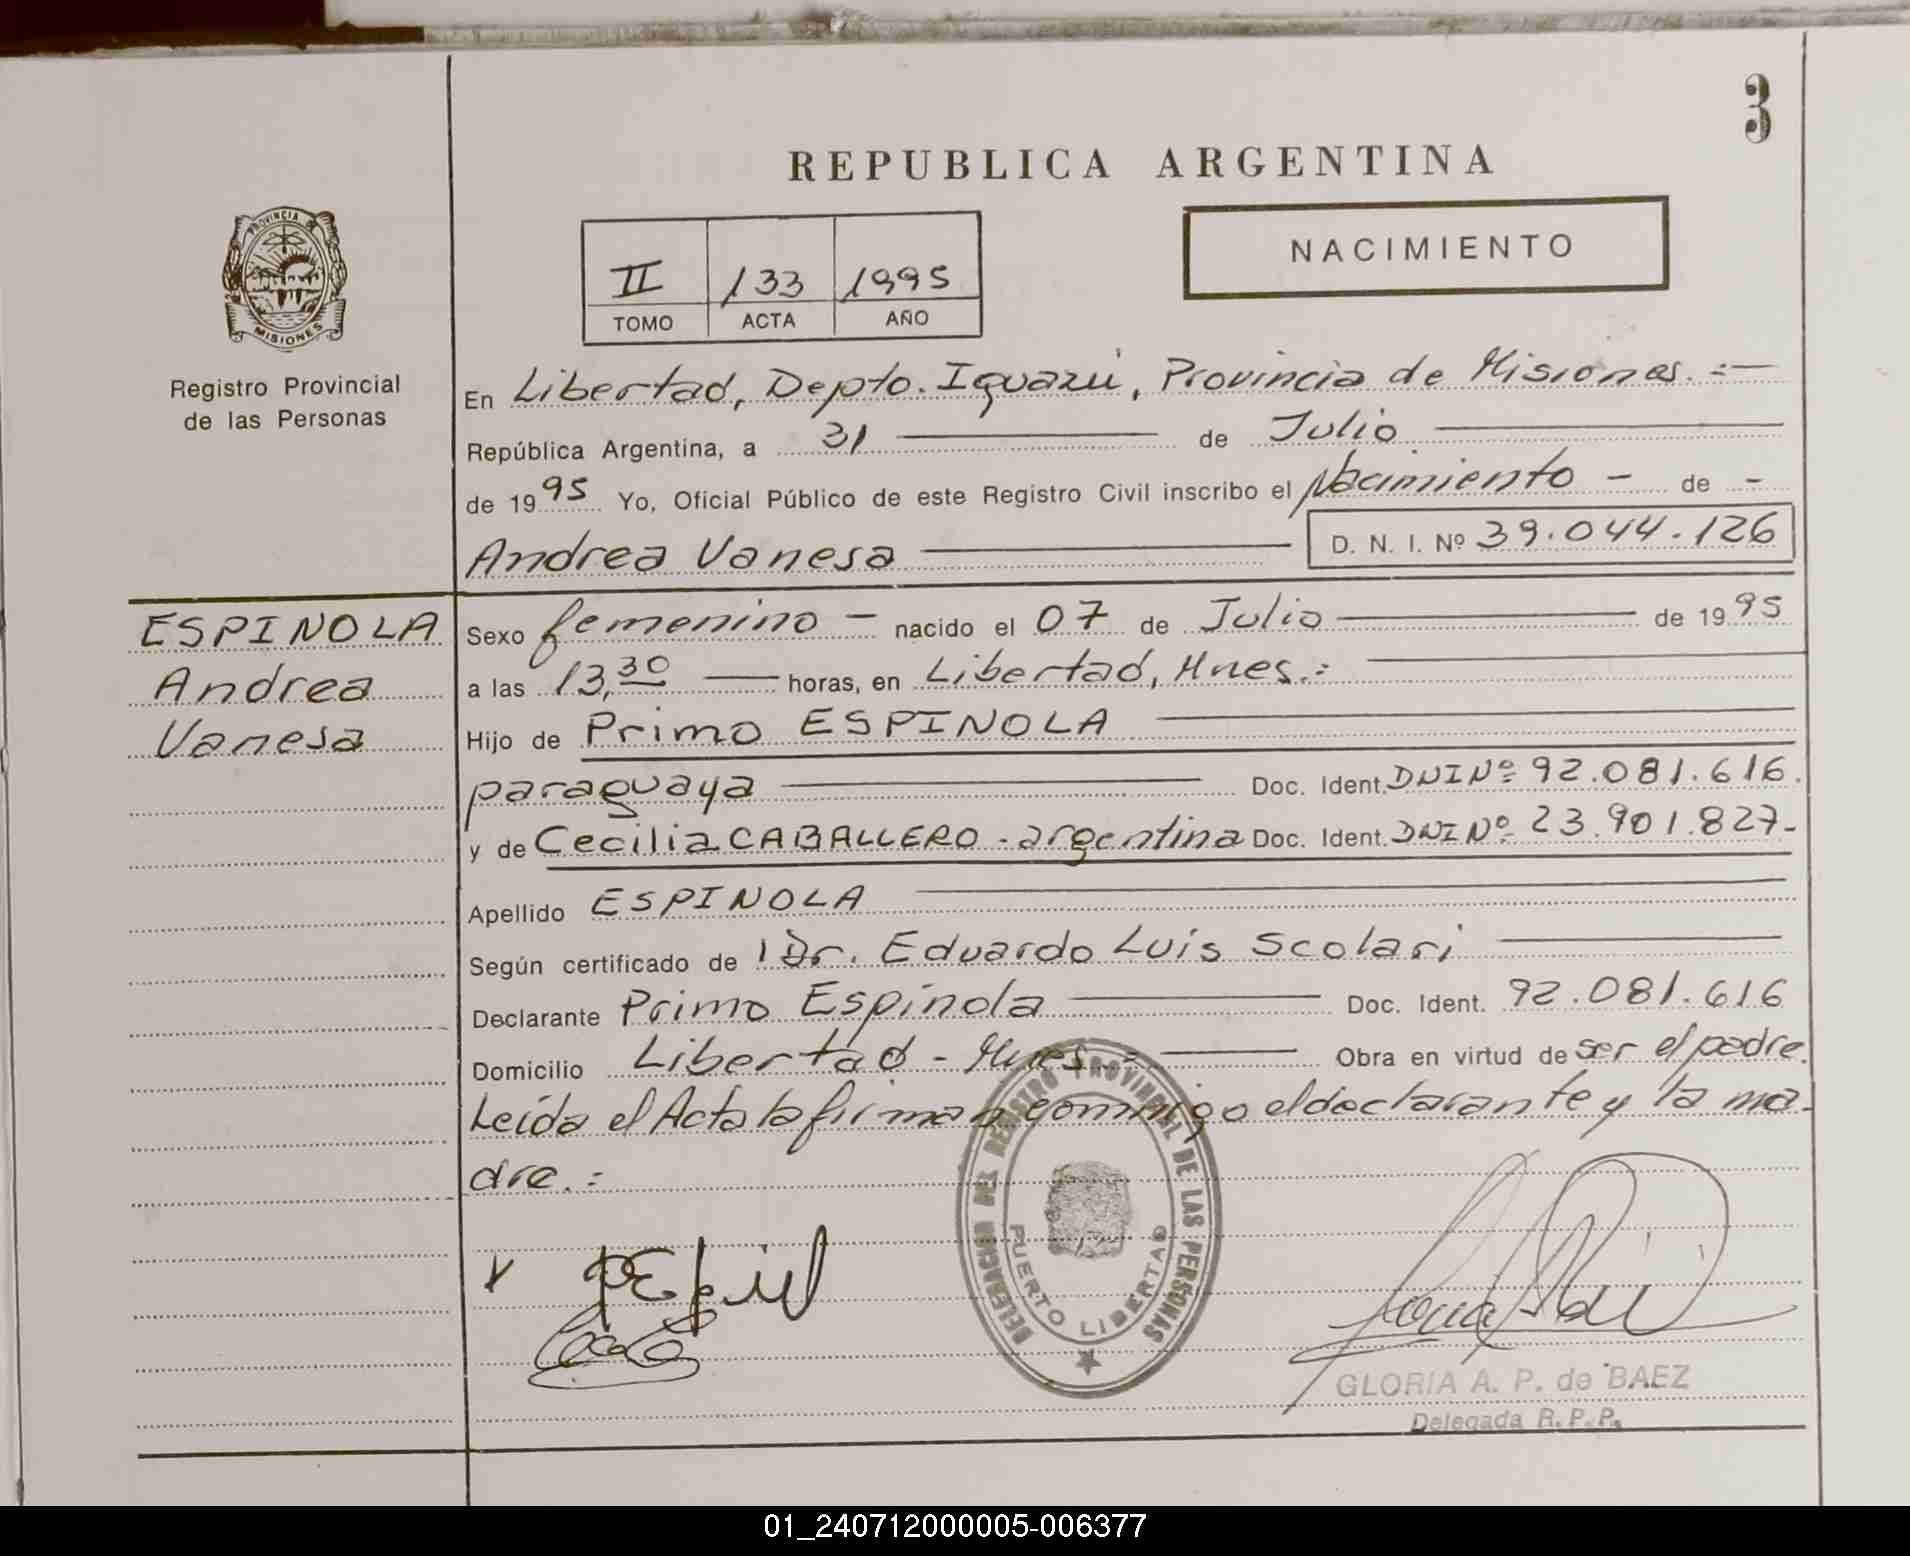 3
REPUBLICA ARGENTINA
PROVINCIA DE MISIONES
Registro Provincial
de las Personas
II 133 1995
TOMO ACTA AÑO
NACIMIENTO
En Libertad, Depto. Iguazú, Provincia de Misiones.=—
República Argentina, a 31 — de Julio —
de 1995 Yo, Oficial Público de este Registro Civil inscribo el Nacimiento - de -
Andrea Vanesa — D. N. I. Nº 39.044.126
ESPINOLA
Andrea
Vanesa
Sexo femenino - nacido el 07 de Julio — de 1995
a las 13,30 — horas, en Libertad, Mnes.= —
Hijo de Primo ESPINOLA —
paraguaya — Doc. Ident. DNI Nº 92.081.616.
y de Cecilia CABALLERO - argentina Doc. Ident. DNI Nº 23.901.827-
Apellido ESPINOLA —
Según certificado de Dr. Eduardo Luis Scolari —
Declarante Primo Espínola — Doc. Ident. 92.081.616
Domicilio Libertad - Mnes.= — Obra en virtud de ser el padre.
Leída el Acta la firman conmigo el declarante y la ma-
dre.=
DELEGACION DEL REGISTRO PROVINCIAL DE LAS PERSONAS
PUERTO LIBERTAD
GLORIA A. P. de BAEZ
Delegada R. P. P.
01_240712000005-006377